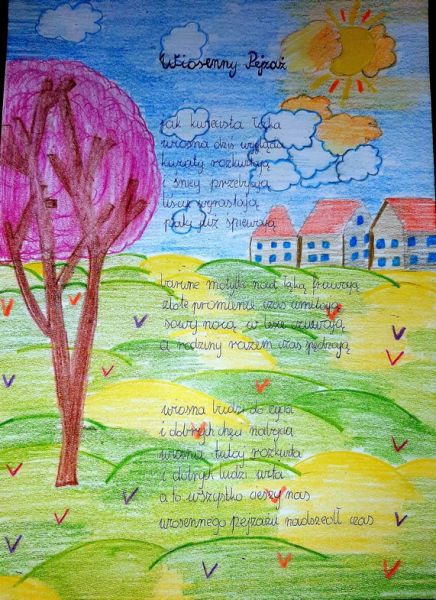 Wiosenny Pejzaż
jak kwiecista łąka
wiosna dziś wygląda
kwiaty rozkwitają
i śnieg przebijają
liście wyrastają
ptaki już śpiewają
barwne motylki nad łąką fruwają
złote promienie czas umilają
sowy nocą w lesie czuwają
a rodziny razem czas spędzają
wiosna budzi do życia
i dobrych chęci nabycia
wiosna tutaj rozkwita
i dobrych ludzi wita
a to wszystko cieszy nas
wiosennego pejzażu nadszedł czas